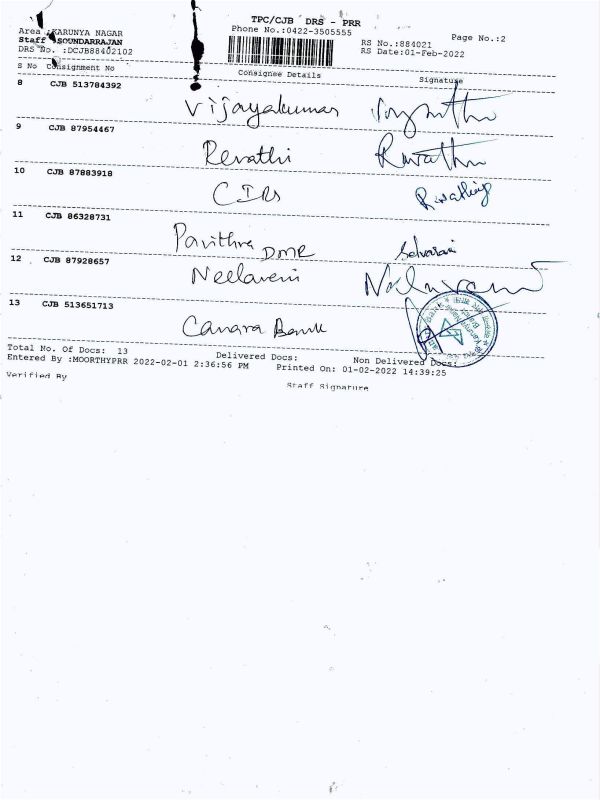 TPC/CJB DRS - PRR
Area :KARUNYA NAGAR
Phone No.:0422-3505555
Page No.:2
Staff :SOUNDARRAJAN
RS No.:884021
DRS No. :DCJB88402102
RS Date:01-Feb-2022
S No Consignment No Consignee Details Signature
8 CJB 513784392
Vijayakumar
9 CJB 87954467
Revathi Revathi
10 CJB 87883918
CIRs
11 CJB 86328731
Pavithra DMR Selvarani
12 CJB 87928657
Neelaveni
13 CJB 513651713
Canara Bank
Total No. Of Docs: 13 Delivered Docs: Non Delivered Docs:
Entered By :MOORTHYPRR 2022-02-01 2:36:56 PM Printed On: 01-02-2022 14:39:25
Verified By Staff Signature